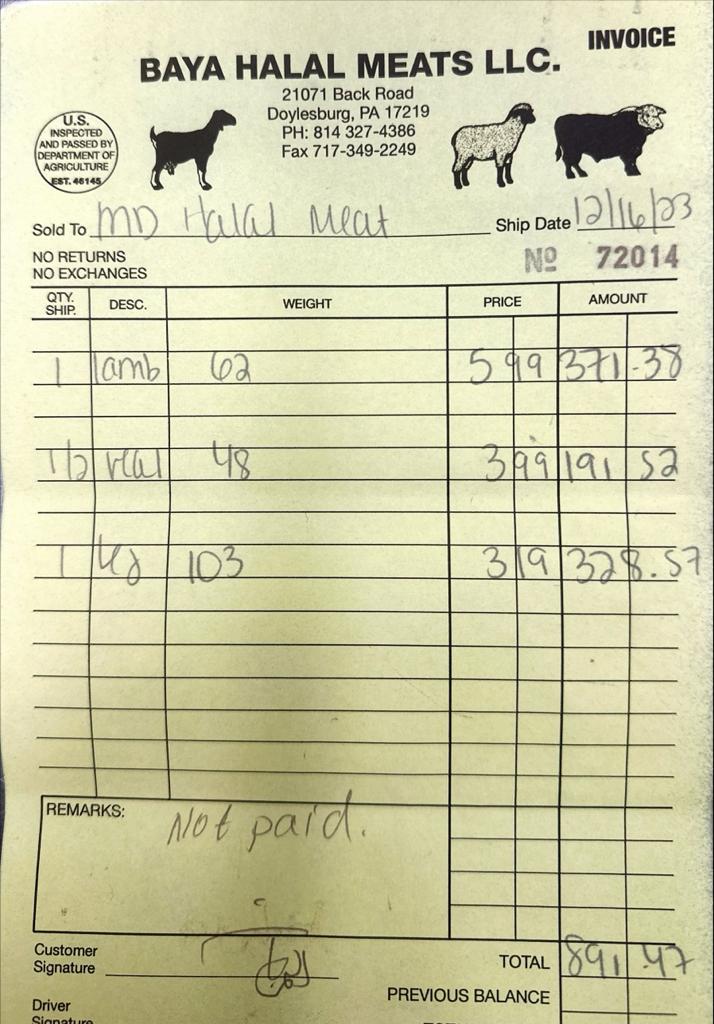 INVOICE
BAYA HALAL MEATS LLC.
21071 Back Road
Doylesburg, PA 17219
PH: 814 327-4386
Fax 717-349-2249
U.S.
INSPECTED
AND PASSED BY
DEPARTMENT OF
AGRICULTURE
EST. 46145
Sold To MD Halal Meat Ship Date 12/16/23
NO RETURNS
NO EXCHANGES
No 72014
QTY. SHIP. DESC. WEIGHT PRICE AMOUNT
1 lamb 62 5 99 371.38
1/2 veal 48 3 99 191 52
1 103 3 19 328.57
REMARKS: Not paid.
Customer
Signature
TOTAL 891.47
PREVIOUS BALANCE
Driver
Signature